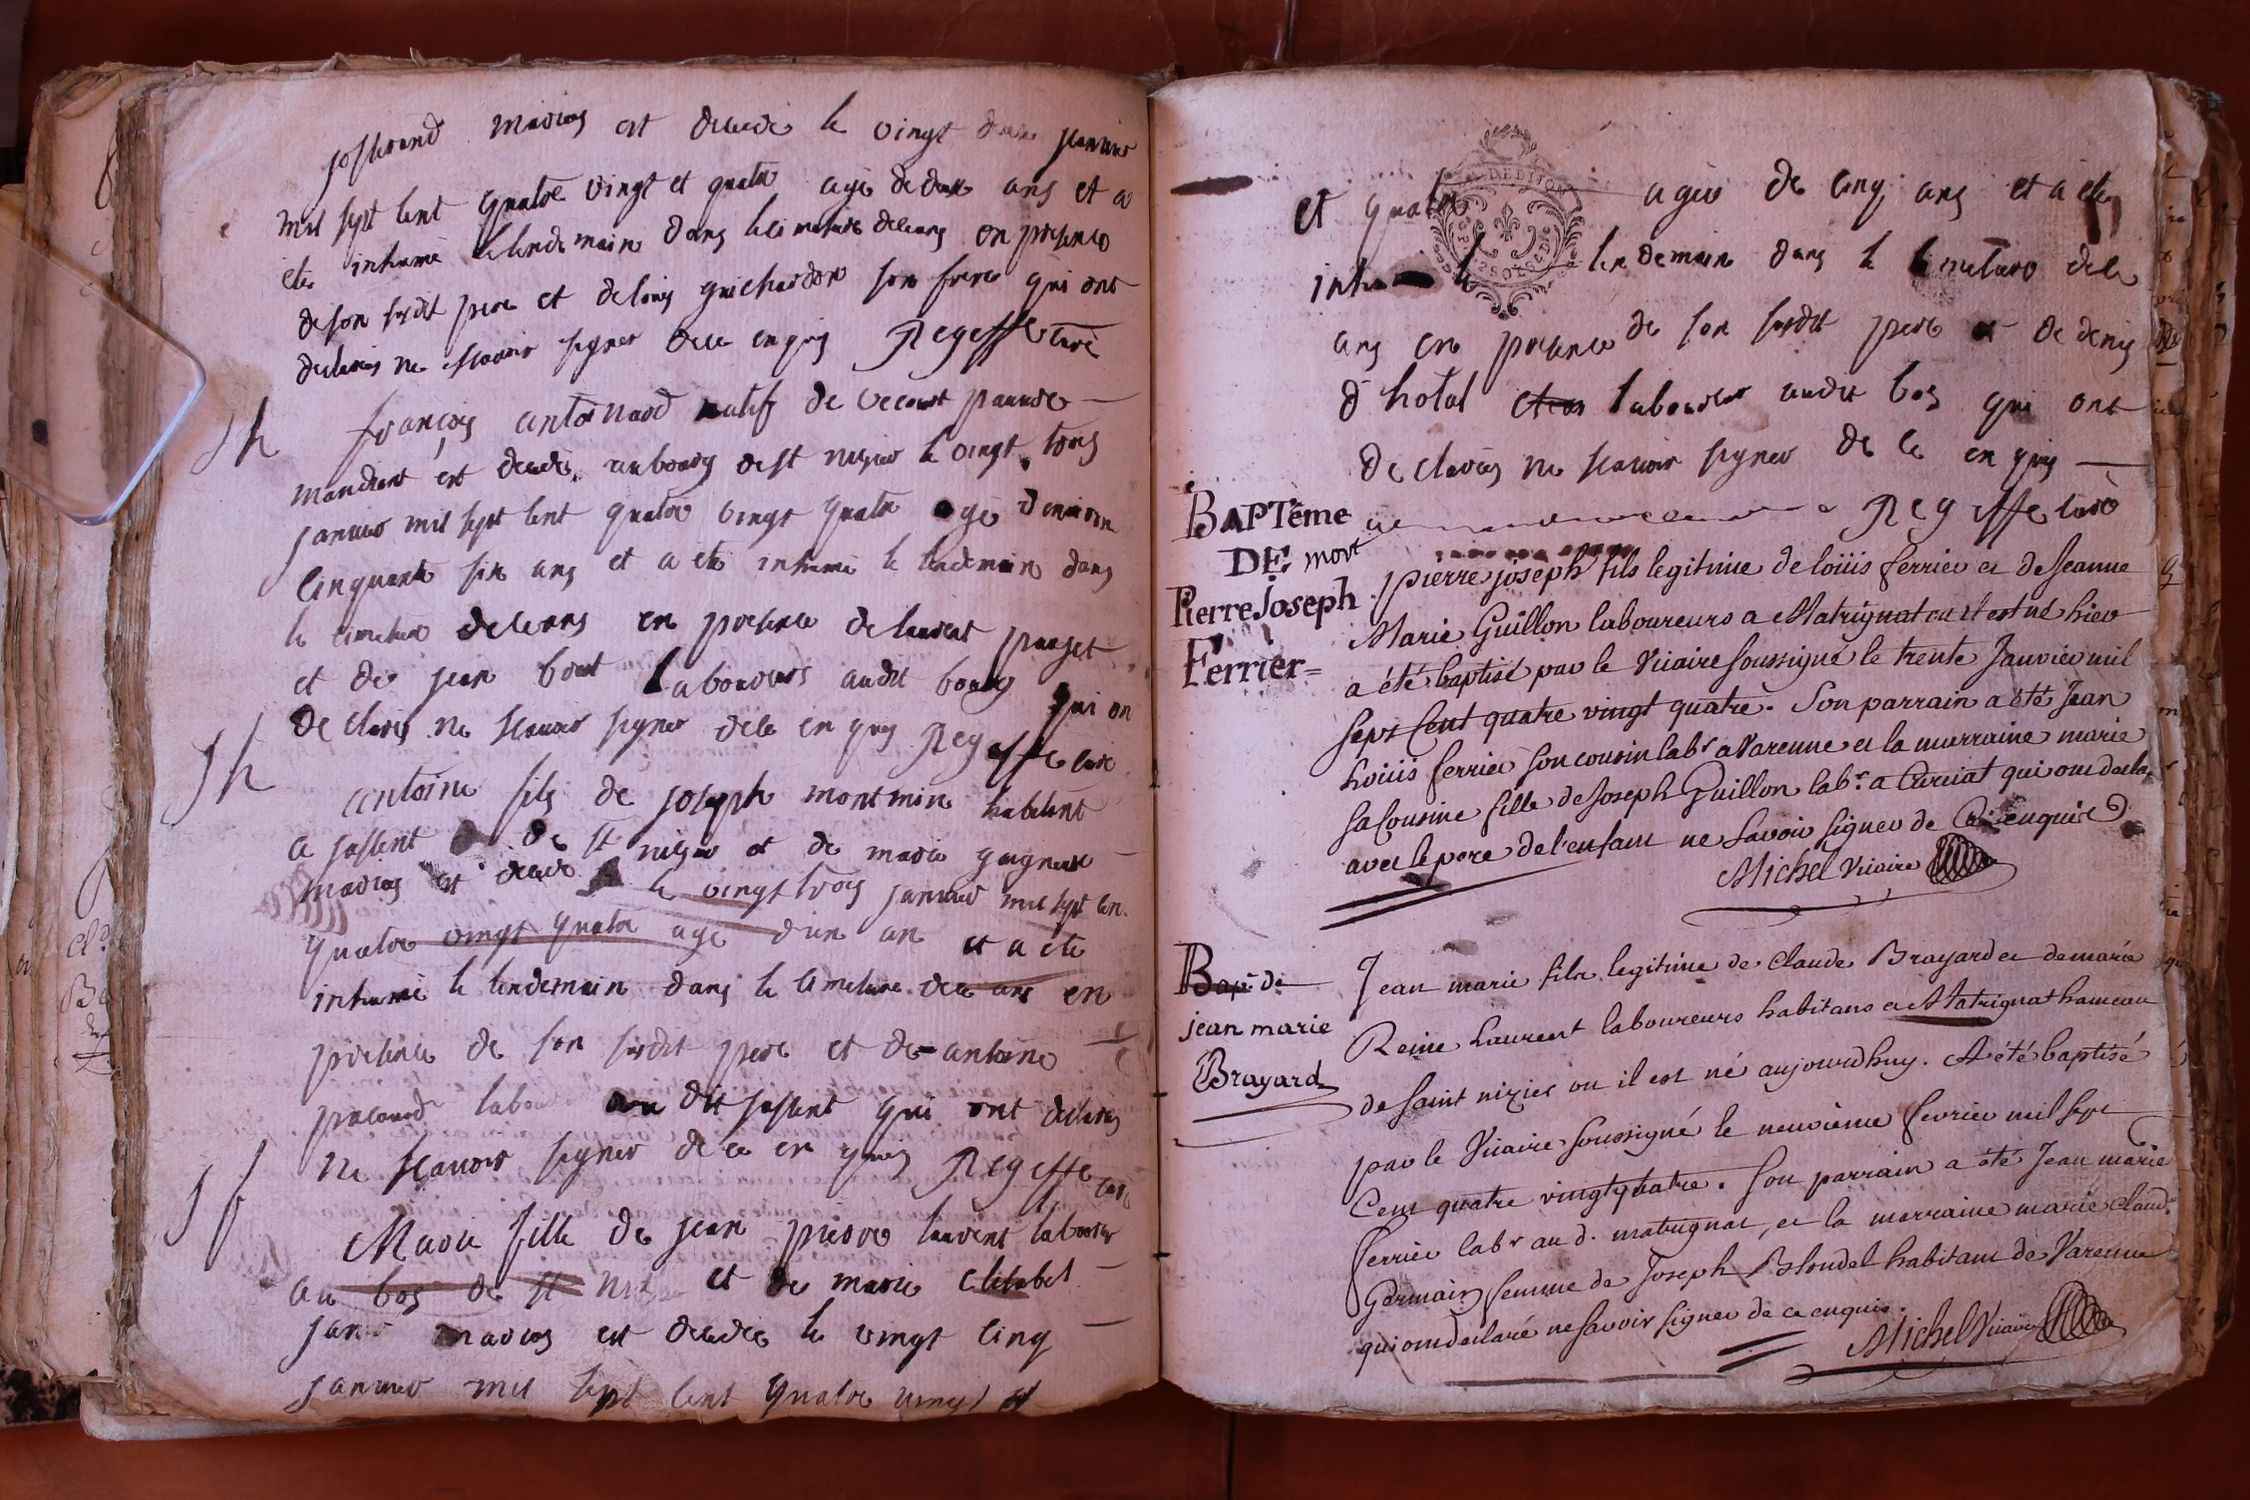 josserand mariés est decedé le vingt deux janvier
mil sept cent quatre vingt et quatre agé de deux ans et a
eté inhumé le lendemain dans le cimetiere deceans en presence
de son susdit pere et de louis guichardon son frere qui ont
declarés ne scavoir signer de ce enquis Regeffe curé
jh françois antoinard natif de vecourt pauvre
mandiant est decedé au bourg de st nizier le vingt trois
janvier mil sept cent quatre vingt quatre agé denviron
cinquante six ans et a eté inhumé le lendemain dans
le cimetiere deceans en presence de laurent pauget
et de jean bout laboureurs audit bourg qui on
declarés ne scavoir signer de ce enquis Regeffe curé
jh antoine fils de joseph montmin habitant
a jassent de st nizier et de marie
mariés est decedé le vingt trois janvier mil sept cen
quatre vingt quatre agé d'un an et a eté
inhumé le lendemain dans le cimetiere de ceans en
presence de son susdit pere et de antoine
labou au dit jassent qui ont declarés
ne scavoir signer de ce enquis Regeffe curé
jf Marie fille de jean pierre laurent laboureur
au bos de st niz et de marie
mariés est decedée le vingt cinq
janvier mil sept cent quatre vingt et
et quatre agée de cinq ans et a eté
inhu le lendemain dans le cimetiere de ce
ans en presence de son susdit pere et de denis
d'hotal laboureur audit bos qui ont
declarés ne scavoir signer de ce enquis
Regeffe curé
BAPTême
DE mort
Pierre Joseph
Ferrier=
pierre joseph fils legitime de loüis ferrier et de Jeanne
Marie Guillon laboureurs a Matrignat ou il est né hier
a été baptisé par le Vicaire soussigné le trente Janvier mil
sept Cent quatre vingt quatre. Son parrain a été Jean
Loüis ferrier son cousin labr a Varenne et la marraine marie
sa Cousine fille de Joseph Guillon labr. a Curciat qui ont decla
avec le pere de l'enfant ne Savoir signer de Ce enquis
Michel Vicaire
Bap. de
jean marie
Brayard
Jean marie fils legitime de Claude Brayard et de marie
Reine Laurent laboureurs habitans a Matrignat hameau
de saint nizier ou il est né aujourdhuy. A été baptisé
par le Vicaire soussigné le neuvieme fevrier mil sept
Cent quatre vingt quatre. Son parrain a été Jean marie
ferrier labr au d. matrignat, et la marraine marie claud.
Germain femme de Joseph Blondel habitant de Varenne
qui ont declaré ne savoir signer de ce enquis.
Michel Vicaire